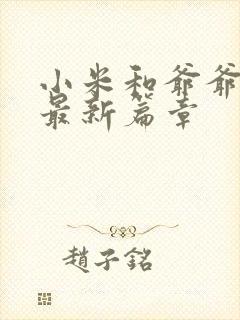 小米和爷爷
最新篇章
趙子銘